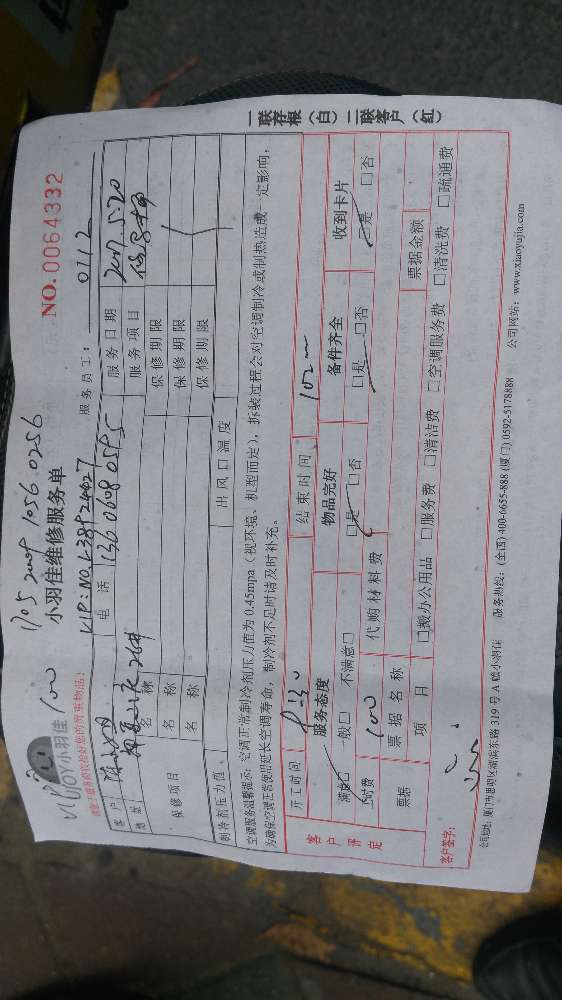 1705 2009 1056 0256
UJOY 小羽佳 100
小羽佳维修服务单
NO.0064332
VIP:NO.
服务员工: 0112
客户:
电话 136 0608 0595
服务日期 2017.5.20
地址:
服务项目
保修项目
名称
保修期限
名称
保修期限
名称
保修期限
制冷剂压力值
出风口温度
空调服务温馨提示:空调正常制冷剂压力值为0.45mpa(视环境、机型而定),拆装过程会对空调制冷或制热造成一定影响,
为确保空调正常使用延长空调寿命,制冷剂不足时请及时补充。
开工时间
结束时间
客户评定
服务态度
物品完好
备件齐全
收到卡片
满意□ 一般□ 不满意□
□是 □否
□是 □否
□是 □否
上时费 100
代购材料费
票据
票据名称
票据金额
项目
□搬办公用品 □服务费 □清洁费 □空调服务费 □清洗费 □疏通费
客户签字:
公司地址:厦门市思明区湖滨东路319号A
服务热线:(全国)400-6655-888(厦门)0592-5178888
公司网站:www.xiaoyujia.com
一联存根(白)二联客户(红)